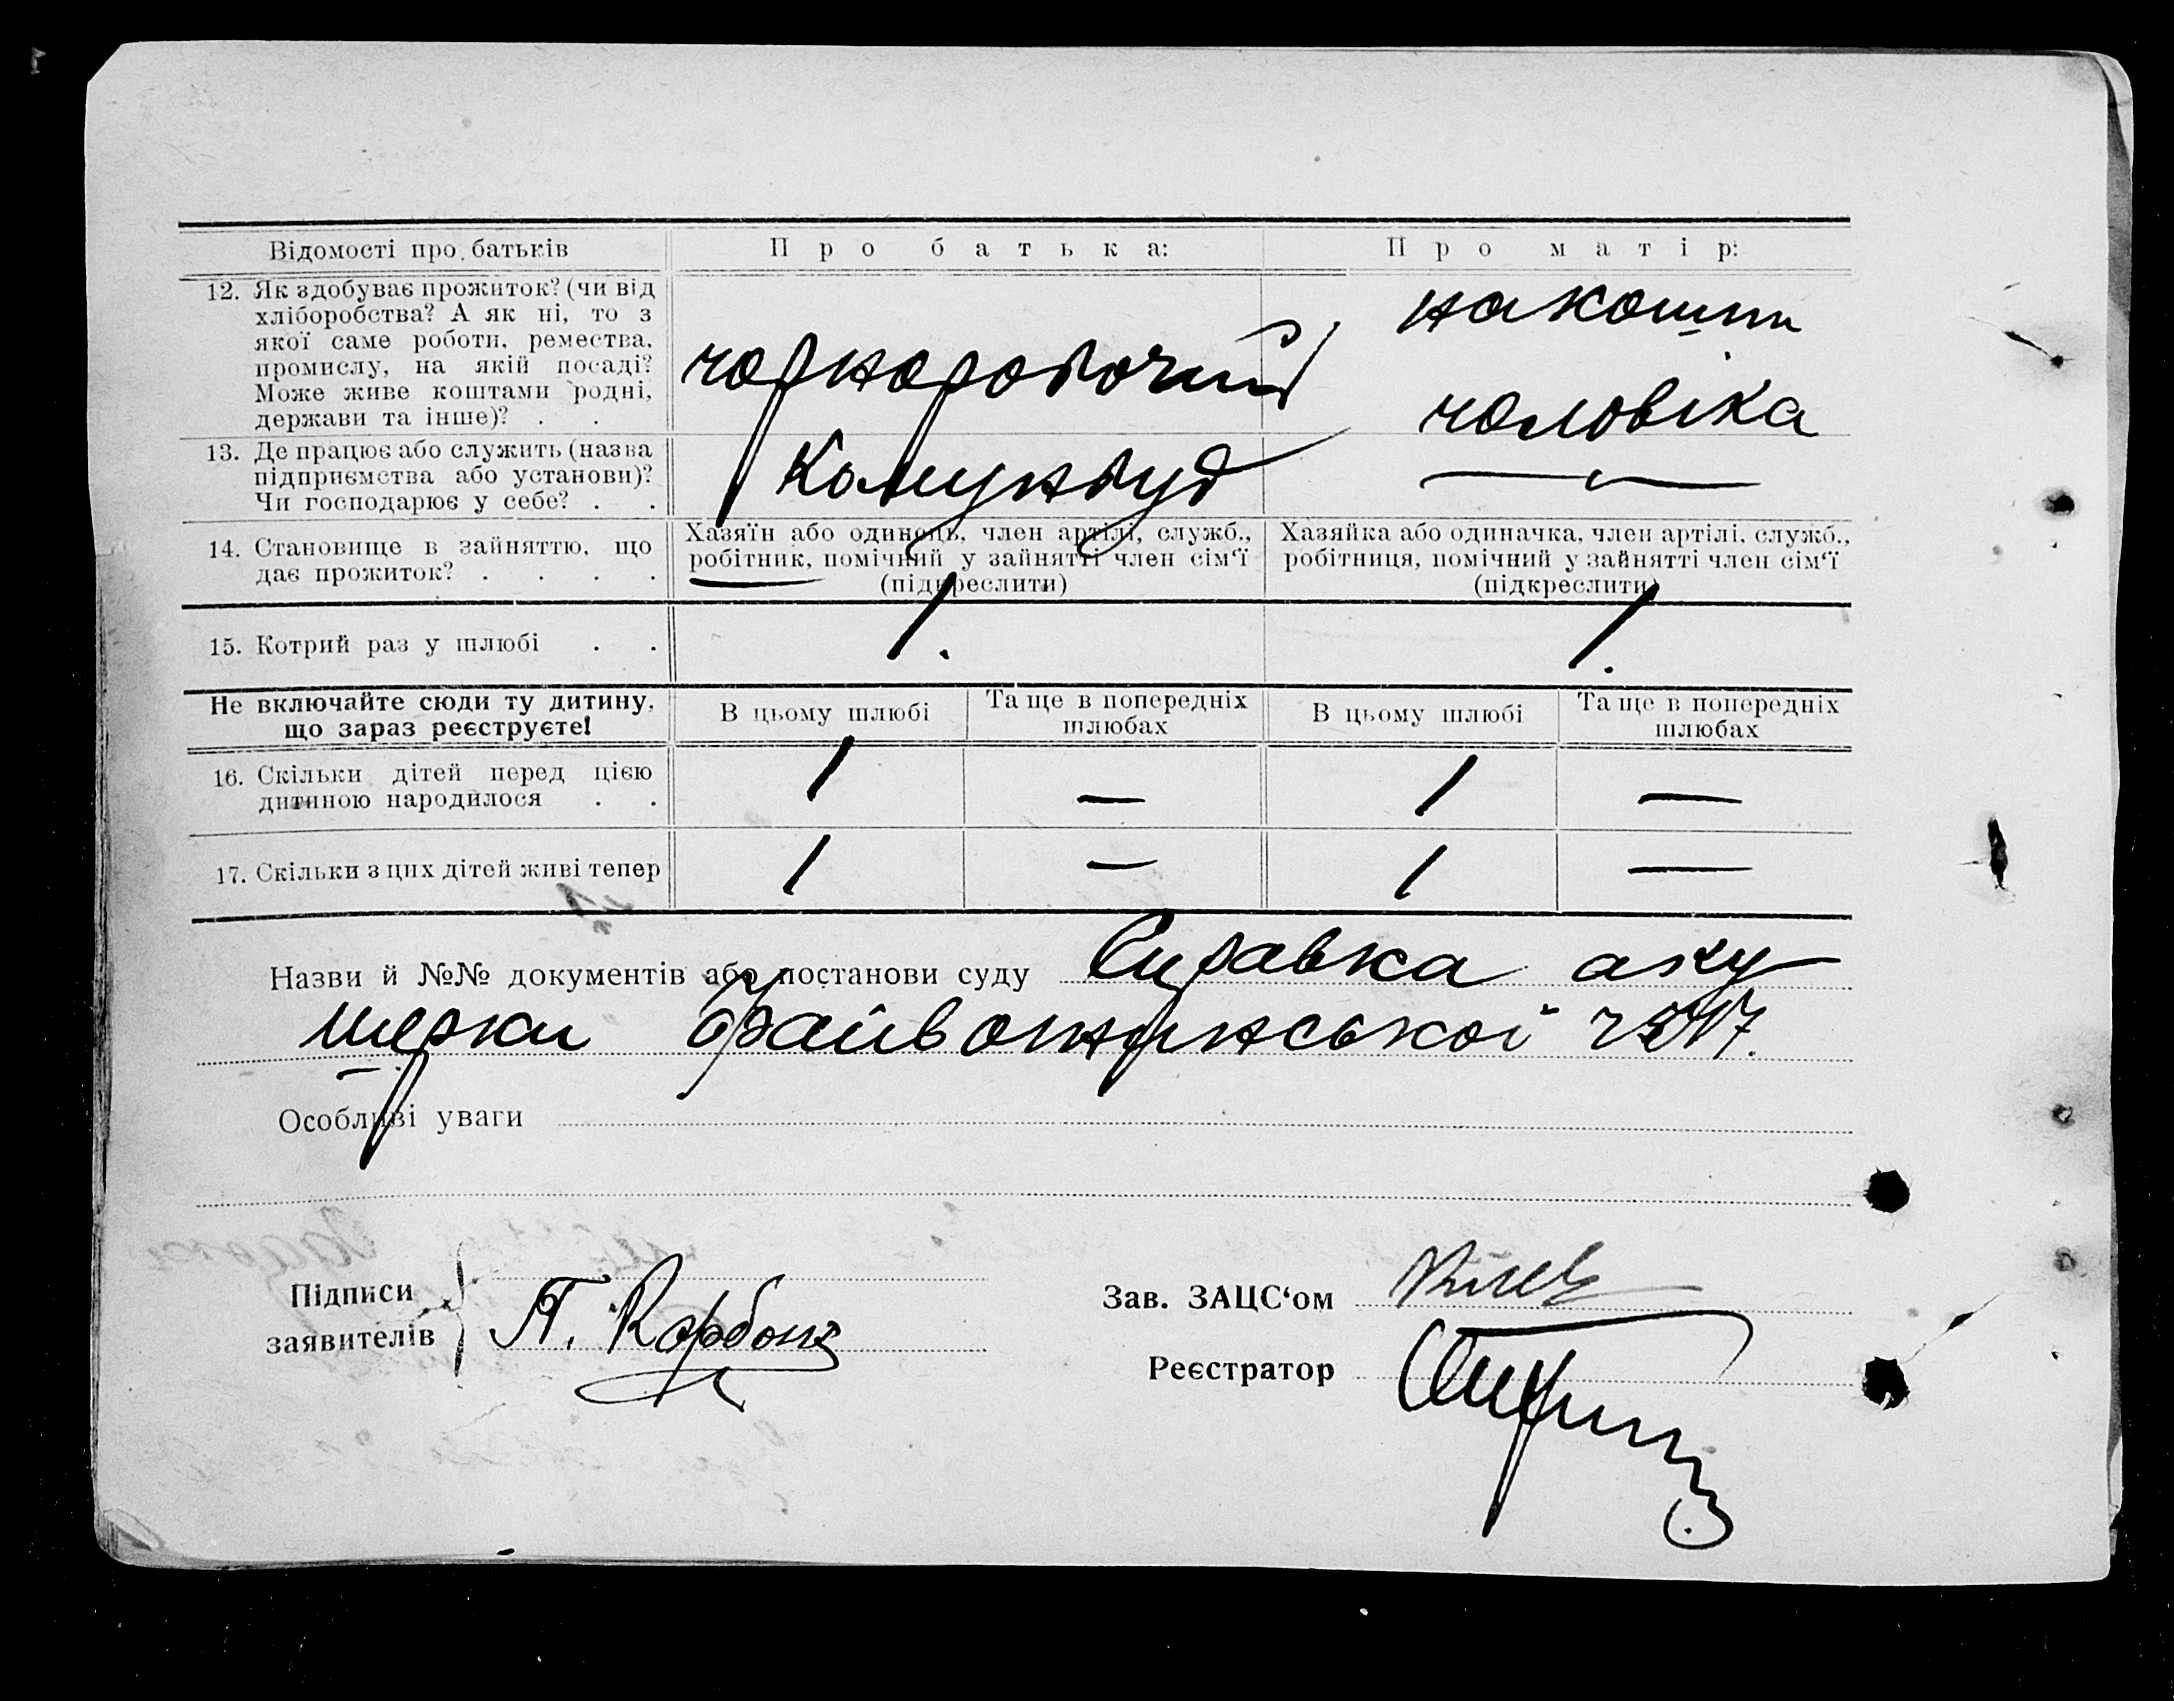 Відомості про батьків
Про батька:
Про матір:
12. Як здобуває прожиток? (чи від
хліборобства? А як ні, то з
якої саме роботи, ремества,
промислу, на якій посаді?
Може живе коштами родні,
держави та інше)? . .
чорноробочий
на кошти
чоловіка
13. Де працює або служить (назва
підприємства або установи)?
Чи господарює у себе? . .
Комунбуд
—
14. Становище в зайняттю, що
дає прожиток? . . . .
Хазяїн або одинець, член артілі, служб.,
робітник, помічний у зайнятті член сім‘ї
(підкреслити)
Хазяйка або одиначка, член артілі, служб.,
робітниця, помічний у зайнятті член сім‘ї
(підкреслити)
15. Котрий раз у шлюбі . .
1.
1.
Не включайте сюди ту дитину,
що зараз реєструєте!
В цьому шлюбі
Та ще в попередніх
шлюбах
В цьому шлюбі
Та ще в попередніх
шлюбах
16. Скільки дітей перед цією
дитиною народилося . .
1 — 1 —
17. Скільки з цих дітей живі тепер
1 — 1 —
Назви й №№ документів або постанови суду Справка аку
шерки
Особливі уваги
Підписи
заявителів
П.
Зав. ЗАЦС‘ом
Реєстратор